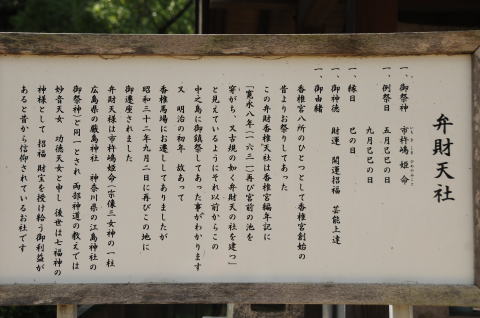 弁財天社
一、御祭神 市杵嶋姫命
一、例祭日 五月己巳の日
九月己巳の日
一、縁日 巳の日
一、御神徳 財運 開運招福 芸能上達
一、御由緒
香椎宮八所のひとつとして香椎宮創始の
昔よりお祭りしてあった
この弁財香椎天社は香椎宮編年記に
「寛永八年(一六三一)再び宮前の池を
穿がち、又古規の如く弁財天の社を建つ」
と見えているようにそれ以前からこの
中之島に御鎮祭してあった事がわかります
又 明治の初年 故あって
香椎馬場にお遷ししてありましたが
昭和三十二年九月二日に再びこの地に
御遷座されました
弁財天様は市杵嶋姫命(宗像三女神の一社
広島県の厳島神社 神奈川県の江島神社の
御祭神)と同一とされ 両部神道の教えでは
妙音天女 功徳天女と申し 後世は七福神の
神様として 招福 財宝を授け給う御利益が
あると昔から信仰されているお社です